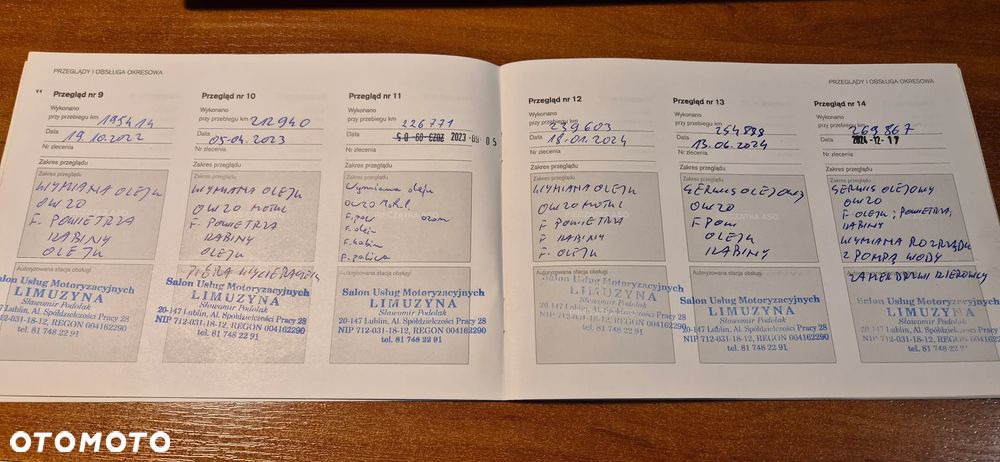 PRZEGLĄDY I OBSŁUGA OKRESOWA
Przegląd nr 9
Wykonano
przy przebiegu km 195414
Data 19.10.2022
Nr zlecenia
Zakres przeglądu
Zakres przeglądu
WYMIANA OLEJU
OW20
F. POWIETRZA
KABINY
OLEJU
Autoryzowana stacja obsługi
Salon Usług Motoryzacyjnych
LIMUZYNA
Sławomir Podolak
20-147 Lublin, Al. Spółdzielczości Pracy 28
NIP 712-031-18-12, REGON 004162290
tel. 81 748 22 91
Przegląd nr 10
Wykonano
przy przebiegu km 212940
Data 05-04.2023
Nr zlecenia
Zakres przeglądu
Zakres przeglądu
WYMIANA OLEJU
OW20 MOTUL
F. POWIETRZA
KABINY
OLEJU
PIÓRA WYCIERACZEK
Salon Usług Motoryzacyjnych
LIMUZYNA
Sławomir Podolak
20-147 Lublin, Al. Spółdzielczości Pracy 28
NIP 712-031-18-12, REGON 004162290
tel. 81 748 22 91
Przegląd nr 11
Wykonano
przy przebiegu km 226771
Data 2023-09-05
Nr zlecenia
Zakres przeglądu
Zakres przeglądu
Wymiana oleju
OW20 Motul
F. pow
F. oleju
F. kabin
Autoryzowana stacja obsługi
Salon Usług Motoryzacyjnych
LIMUZYNA
Sławomir Podolak
20-147 Lublin, Al. Spółdzielczości Pracy 28
NIP 712-031-18-12, REGON 004162290
tel. 81 748 22 91
PRZEGLĄDY I OBSŁUGA OKRESOWA
Przegląd nr 12
Wykonano
przy przebiegu km 239603
Data 18.01.2024
Nr zlecenia
Zakres przeglądu
Zakres przeglądu
WYMIANA OLEJU
OW20 MOTUL
F POWIETRZA
F KABINY
F. OLEJU
Autoryzowana stacja obsługi
Salon Usług Motoryzacyjnych
LIMUZYNA
Sławomir Podolak
20-147 Lublin, Al. Spółdzielczości Pracy 28
NIP 712-031-18-12, REGON 004162290
tel. 81 748 22 91
Przegląd nr 13
Wykonano
przy przebiegu km
Data 13.06.2024
Nr zlecenia
Zakres przeglądu
Zakres przeglądu
SERWIS OLEJOWY
OW20
F POW
OLEJU
KABINY
Autoryzowana stacja obsługi
Salon Usług Motoryzacyjnych
LIMUZYNA
Sławomir Podolak
20-147 Lublin, Al. Spółdzielczości Pracy 28
NIP 712-031-18-12, REGON 004162290
tel. 81 748 22 91
Przegląd nr 14
Wykonano
przy przebiegu km 269867
Data 2024-12-17
Nr zlecenia
Zakres przeglądu
Zakres przeglądu
SERWIS OLEJOWY
OW20
F OLEJU; POWIETRZA;
KABINY
WYMIANA ROZRZĄDU
Z POMPĄ WODY
ZAMEK DRZWI KIEROWCY
Salon Usług Motoryzacyjnych
LIMUZYNA
Sławomir Podolak
20-147 Lublin, Al. Spółdzielczości Pracy 28
NIP 712-031-18-12, REGON 004162290
tel. 81 748 22 91
OTOMOTO